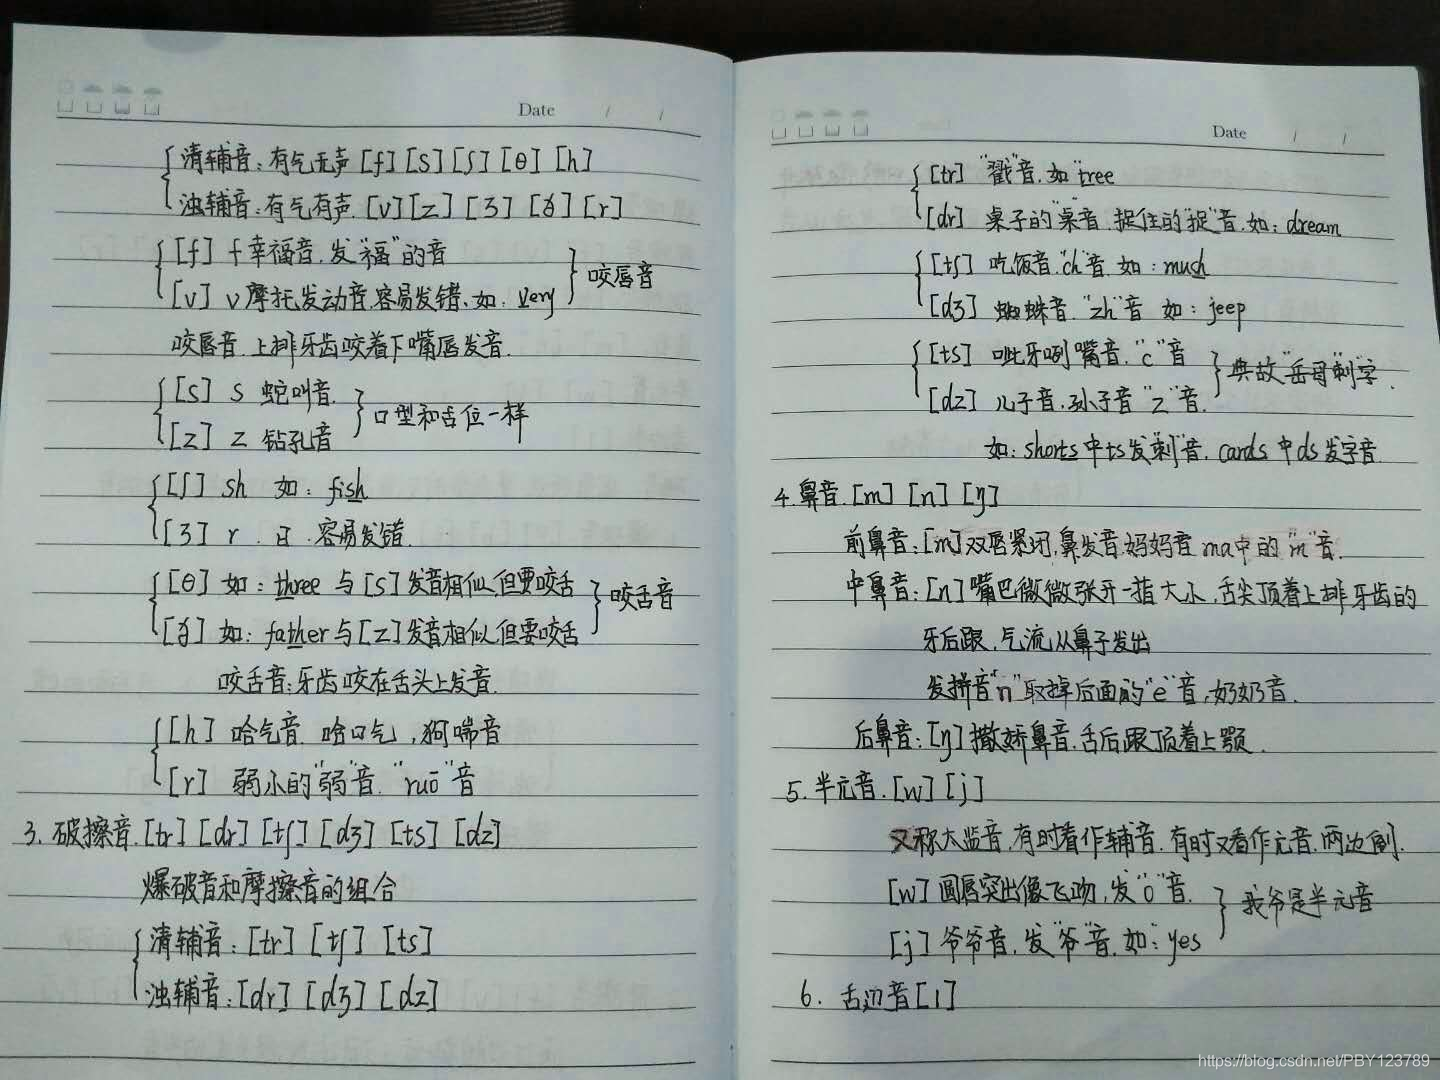 Date / /
清辅音：有气无声 [f] [s] [ʃ] [θ] [h]
浊辅音：有气有声. [v] [z] [ʒ] [ð] [r]
[f] f 幸福音. 发"福"的音
[v] v 摩托发动音. 容易发错. 如：very
咬唇音
咬唇音. 上排牙齿咬着下嘴唇发音.
[s] s 蛇叫音.
[z] z 钻孔音
口型和舌位一样
[ʃ] sh 如：fish
[ʒ] r . 日 . 容易发错.
[θ] 如：three 与 [s] 发音相似. 但要咬舌
[ð] 如：father 与 [z] 发音相似. 但要咬舌
咬舌音
咬舌音：牙齿咬在舌头上发音.
[h] 哈气音. 哈口气, 狗喘音
[r] 弱小的"弱"音. "ruo"音
3. 破擦音. [tr] [dr] [tʃ] [dʒ] [ts] [dz]
爆破音和摩擦音的组合
清辅音：[tr] [tʃ] [ts]
浊辅音：[dr] [dʒ] [dz]
Date / /
[tr] "戳"音. 如 tree
[dr] 桌子的"桌"音. 捉住的"捉"音. 如：dream
[tʃ] 吃饭音. "ch"音. 如：mush
[dʒ] 蜘蛛音. "zh"音 如：jeep
[ts] 呲牙咧嘴音. "c"音
[dz] 儿子音. 孙子音 "z"音.
典故"岳母"刺"字.
如：shorts 中 ts 发"刺"音. cards 中 ds 发字音.
4. 鼻音. [m] [n] [ŋ]
前鼻音：[m] 双唇紧闭, 鼻发音. 妈妈音 ma中的"m"音.
中鼻音：[n] 嘴巴微微张开一指大小, 舌尖顶着上排牙齿的
牙后跟, 气流从鼻子发出
发拼音"n"取掉后面的"e"音, 奶奶音.
后鼻音：[ŋ] 撒娇鼻音. 舌后跟顶着上颚.
5. 半元音. [w] [j]
又称大监音, 有时看作辅音. 有时又看作元音. 两边倒.
[w] 圆唇突出像飞吻, 发"o"音.
[j] 爷爷音, 发"爷"音. 如：yes
我爷是半元音
6. 舌边音 [l]
https://blog.csdn.net/PBY123789